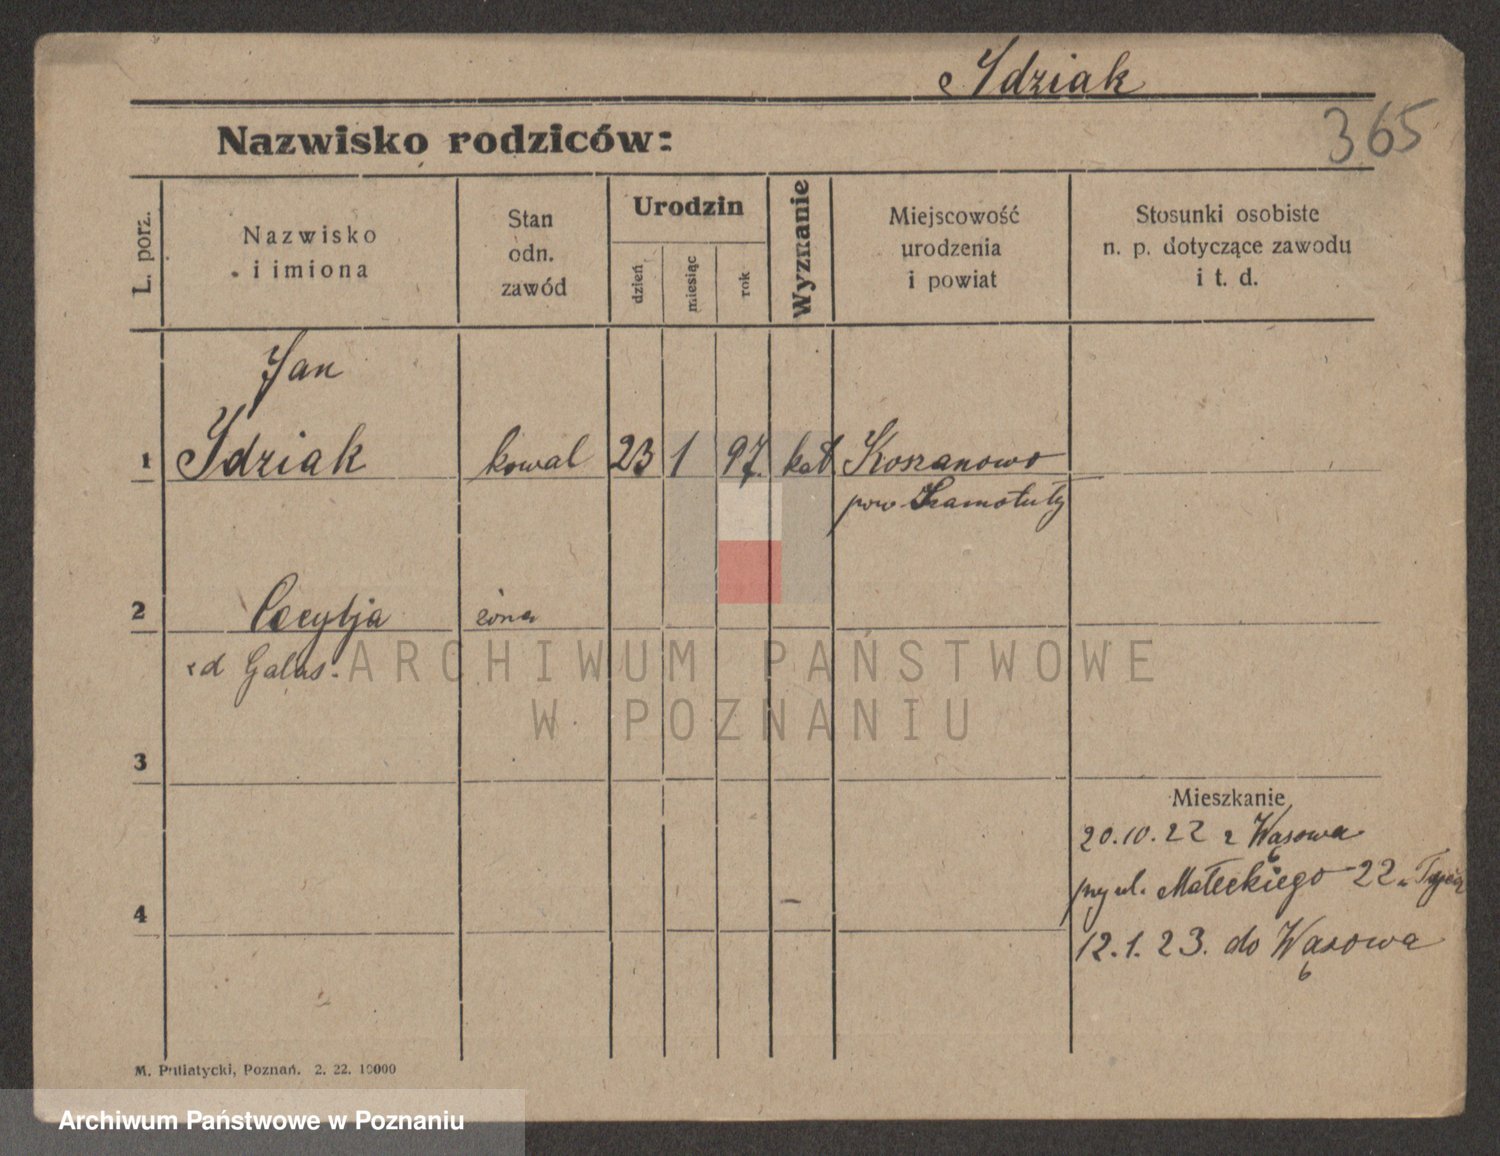 Idziak
365
Nazwisko rodziców:
L. porz.
Nazwisko
i imiona
Stan
odn.
zawód
Urodzin
dzień
miesiąc
rok
Wyznanie
Miejscowość
urodzenia
i powiat
Stosunki osobiste
n. p. dotyczące zawodu
i t. d.
Jan
1 Idziak kowal 23 1 97 kat Koszanowo
pow Szamotuły
2 Cecylja żona
Galas.
ARCHIWUM PAŃSTWOWE
W POZNANIU
3
Mieszkanie
20.10.22 z Wąsowa
przy ul. Małeckiego 22
4
12.1.23. do Wąsowa
M. Putiatycki, Poznań. 2. 22. 10000
Archiwum Państwowe w Poznaniu